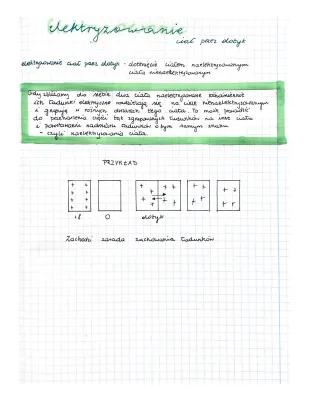 elektryzowanie
ciał przez dotyk
elektryzowanie ciał przez dotyk - dotknięcie ciałem naelektryzowanym
ciała nienaelektryzowanego
Gdy zbliżamy do siebie dwa ciała naelektryzowane
ich ładunki elektryczne na ciele nienaelektryzowanym
i w różnych obszarach tego ciała. To może prowadzić
do przekazania części tak zgrupowanych ładunków na inne ciało
i powstania nadmiaru ładunków o tym samym znaku
- czyli naelektryzowania ciała.
PRZYKŁAD
+ + + + + + + + + + + + + + + + + + + + + +
+8 0 dotyk
Zachodzi zasada zachowania ładunków